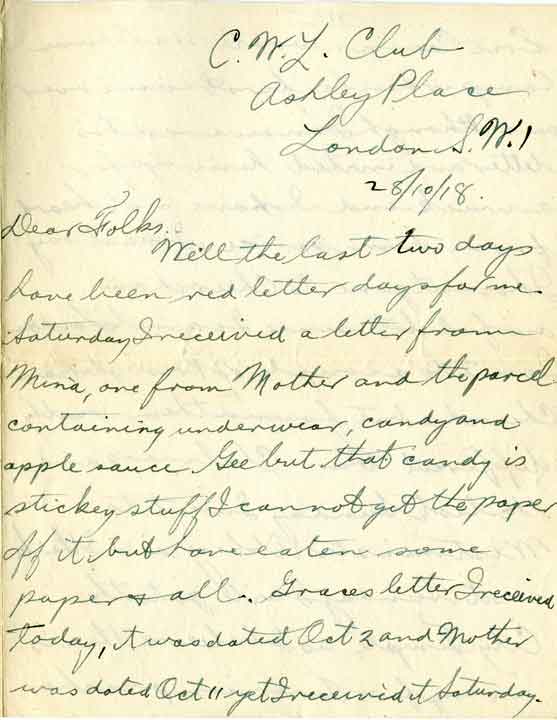 C. W. L. Club
Ashley Place
London S.W.1
28/10/18.
Dear Folks.
Well the last two days
have been red letter days for me.
Saturday I received a letter from
Mina, one from Mother and the parcel
containing underwear, candy and
apple sauce. Gee but that candy is
stickey stuff I cannot get the paper
off it, but have eaten some
paper & all. Graces letter I received
today, it was dated Oct 2 and Mother
was dated Oct 11 yet I received it Saturday.